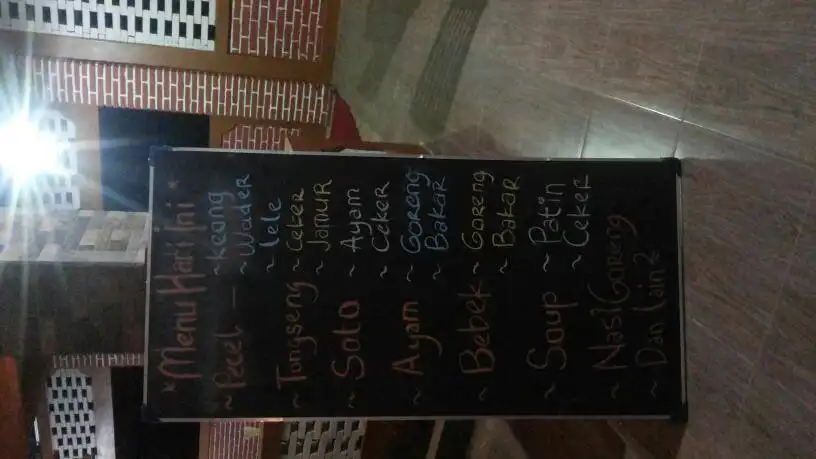 * Menu Hari Ini *
~ Pecel - ~ Keong
~ Wader
~ lele
~ Tongseng ~ Ceker
~ Jamur
~ Soto ~ Ayam
~ Ceker
~ Ayam ~ Goreng
~ Bakar
~ Bebek ~ Goreng
~ Bakar
~ Soup ~ Patin
~ Ceker
~ Nasi Goreng
~ Dan Lain2